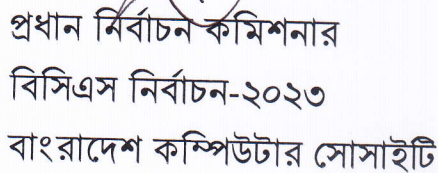 প্রধান নির্বাচন কমিশনার
বিসিএস নির্বাচন-২০২৩
বাংরাদেশ কম্পিউটার সোসাইটি